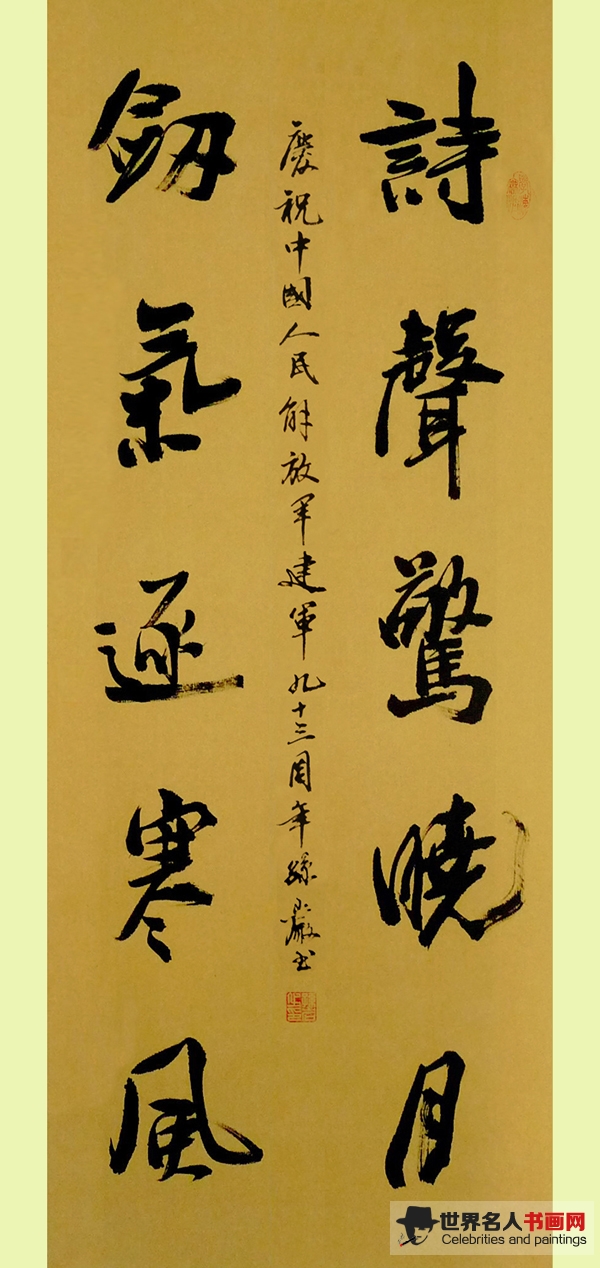 詩聲驚曉月
慶祝中國人民解放军建軍九十三周年孫嚴书
劒氣逐寒风
世界名人书画网
Celebrities and paintings